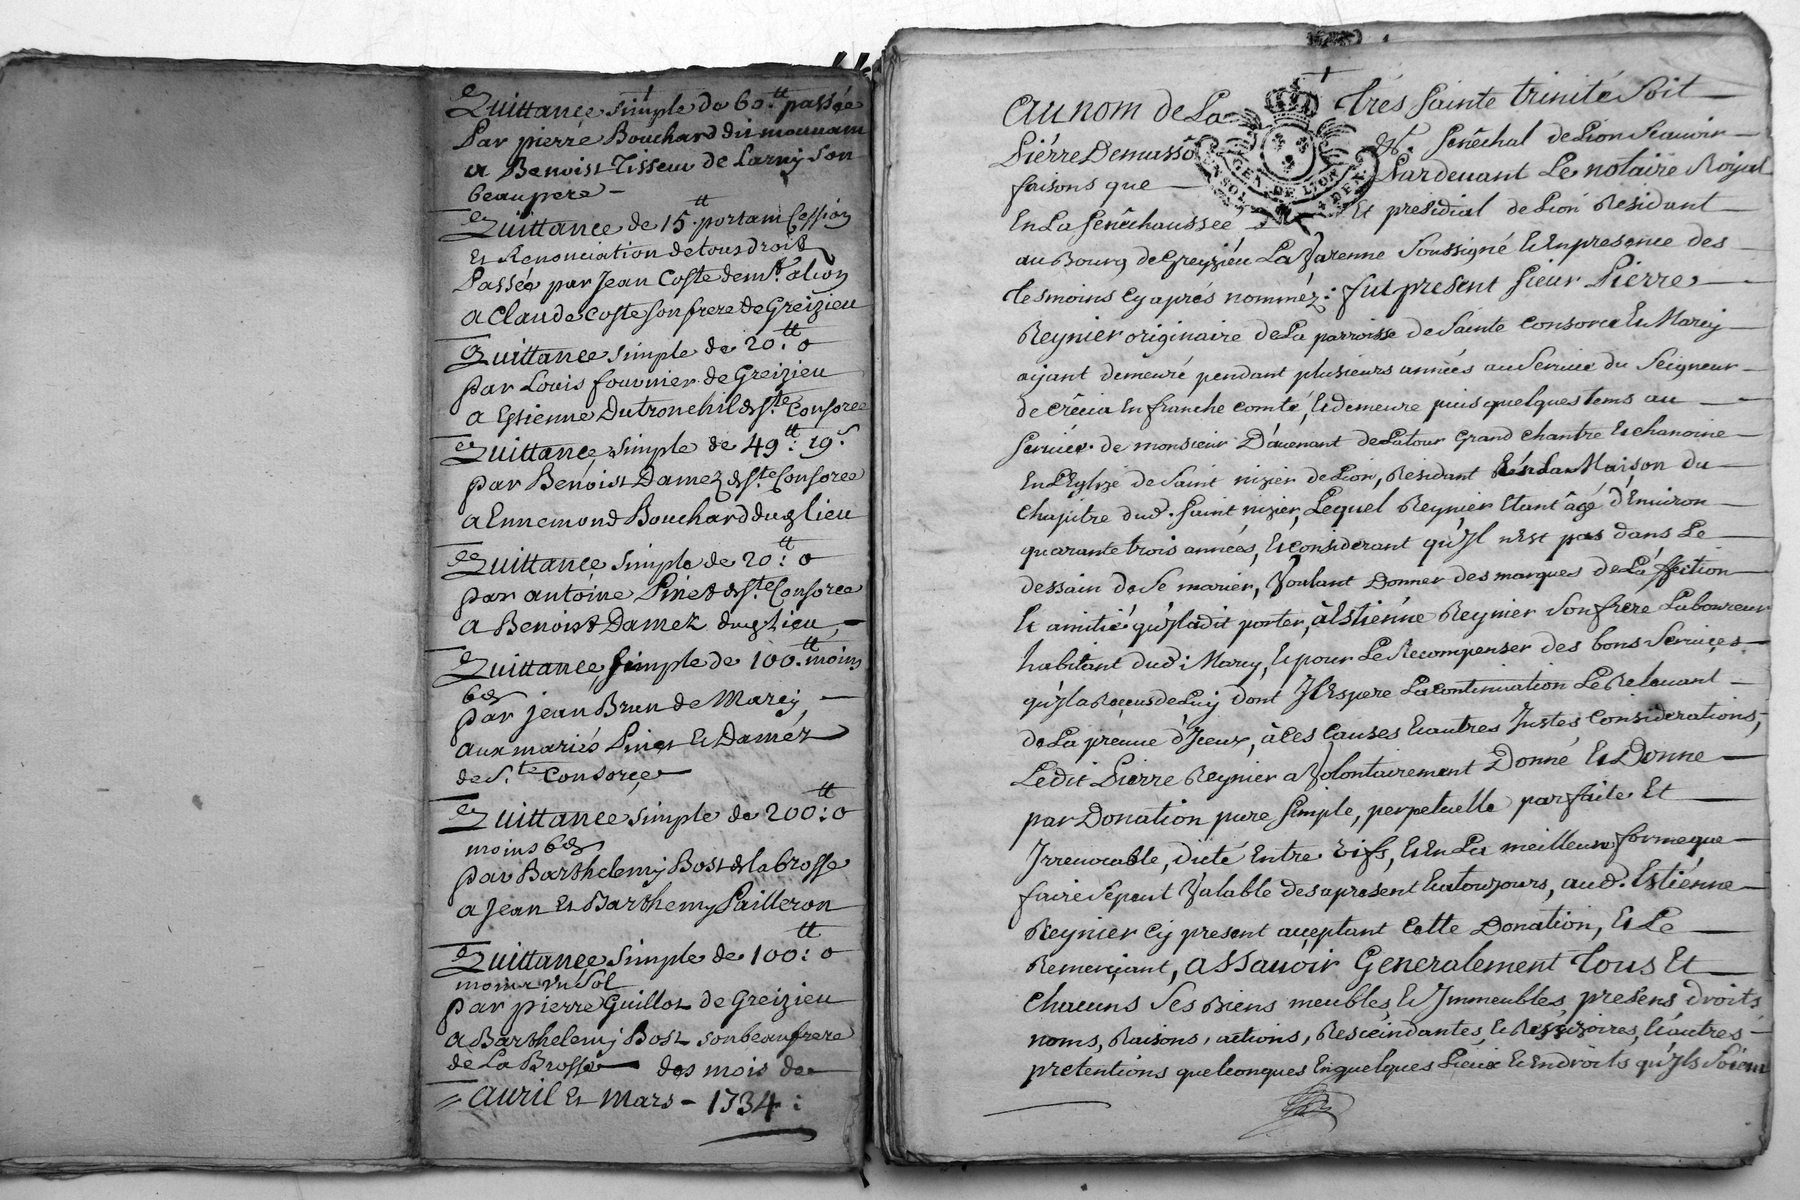 Quittance simple de 60.tt passée
Par pierre Bouchard dit mornam
a Benoist Tisseur de Larny son
beaupere —
Quittance de 15.tt portant Cession
Et Renonciation de tous droits
Passée par Jean Coste de mt. alion
a Claude Coste son frere de Greizieu
Quittance simple de 20.tt: 0
par Louis fournier de Greizieu
a Estienne Dutronchil de ste. Consorce
Quittance simple de 49.tt: 19.s
par Benoist Damez de ste Consorce
a Ennemond Bouchard dud. lieu
Quittance simple de 20.tt: 0
par antoine Pinet de ste Consorce
a Benoist Damez dud. lieu —
Quittance, simple de 100.tt moins
6d.
par jean Brun de Marcy, —
aux mariés Pinet Et Damez
de S.te Consorçe
Quittance simple de 200.tt: 0
moins 6d.
par Barthelemy Bost de la brosse
a Jean Et Barthemy Pailleron
Quittance simple de 100.tt: 0
moins un sol
par pierre Guillot de Greizieu
a Barthelemy Bost son beaufrere
de La Brosse — des mois de
avril Et Mars - 1734 :
Au nom de La très Sainte trinité Soit —
Pierre Demasso Sénéchal de Lion Scavoir —
faisons que — Pardevant Le notaire Royal
En La Senéchaussée Et presidial de Lion Residant —
au Bourg de Greyzieu La Varenne Soussigné Et En presence des
tesmoins cy aprés nommez : fut present Sieur Pierre —
Reynier originaire de La parroisse de Sainte Consorce Et Marcy —
aijant demeuré pendant plusieurs années au Service du Seigneur —
de Crécia En franche comté, Et demeure puis quelques tems au —
Service de monsieur D'avenant de Latour Grand chantre Et chanoine —
En L'Eglize de Saint nizier de Lion, Residant En La Maison du —
Chapitre dud. Saint nizier, Lequel Reynier Etant âgé d'Environ —
quarante trois années, Et considerant qu'Il n'Est pas dans Le —
dessain de Se marier, Voulant Donner des marques de L'affection —
Et amitié qu'Il a dit porter, à Estienne Reynier Son frere Laboureur
habitant dud. Marcy, Et pour Le Recompenser des bons Services —
qu'Il a Reçeus de Luy dont Il Espere La continuation Le Relevant —
de La preuve d'Iceux, à Ces Causes Et autres Justes, considerations,
Ledit Pierre Reynier a Volontairement Donné Et Donne —
par Donation pure Simple, perpetuelle parfaite Et —
Irrevocable, dicté Entre vifs, Et En La meilleure forme que —
faire Se peut Valable des apresent Et a toujours, aud. Estienne —
Reynier Cy present acceptant Cette Donation, Et Le —
Remerçiant, assavoir Generalement tous Et —
Chacuns Ses Biens meubles, Et Immeubles presens droits
noms, Raisons, actions, Resceindantes, Et Resçizoires, Et autres —
pretentions quelconques En quelques Lieux Et Endroits qu'Ils Soient